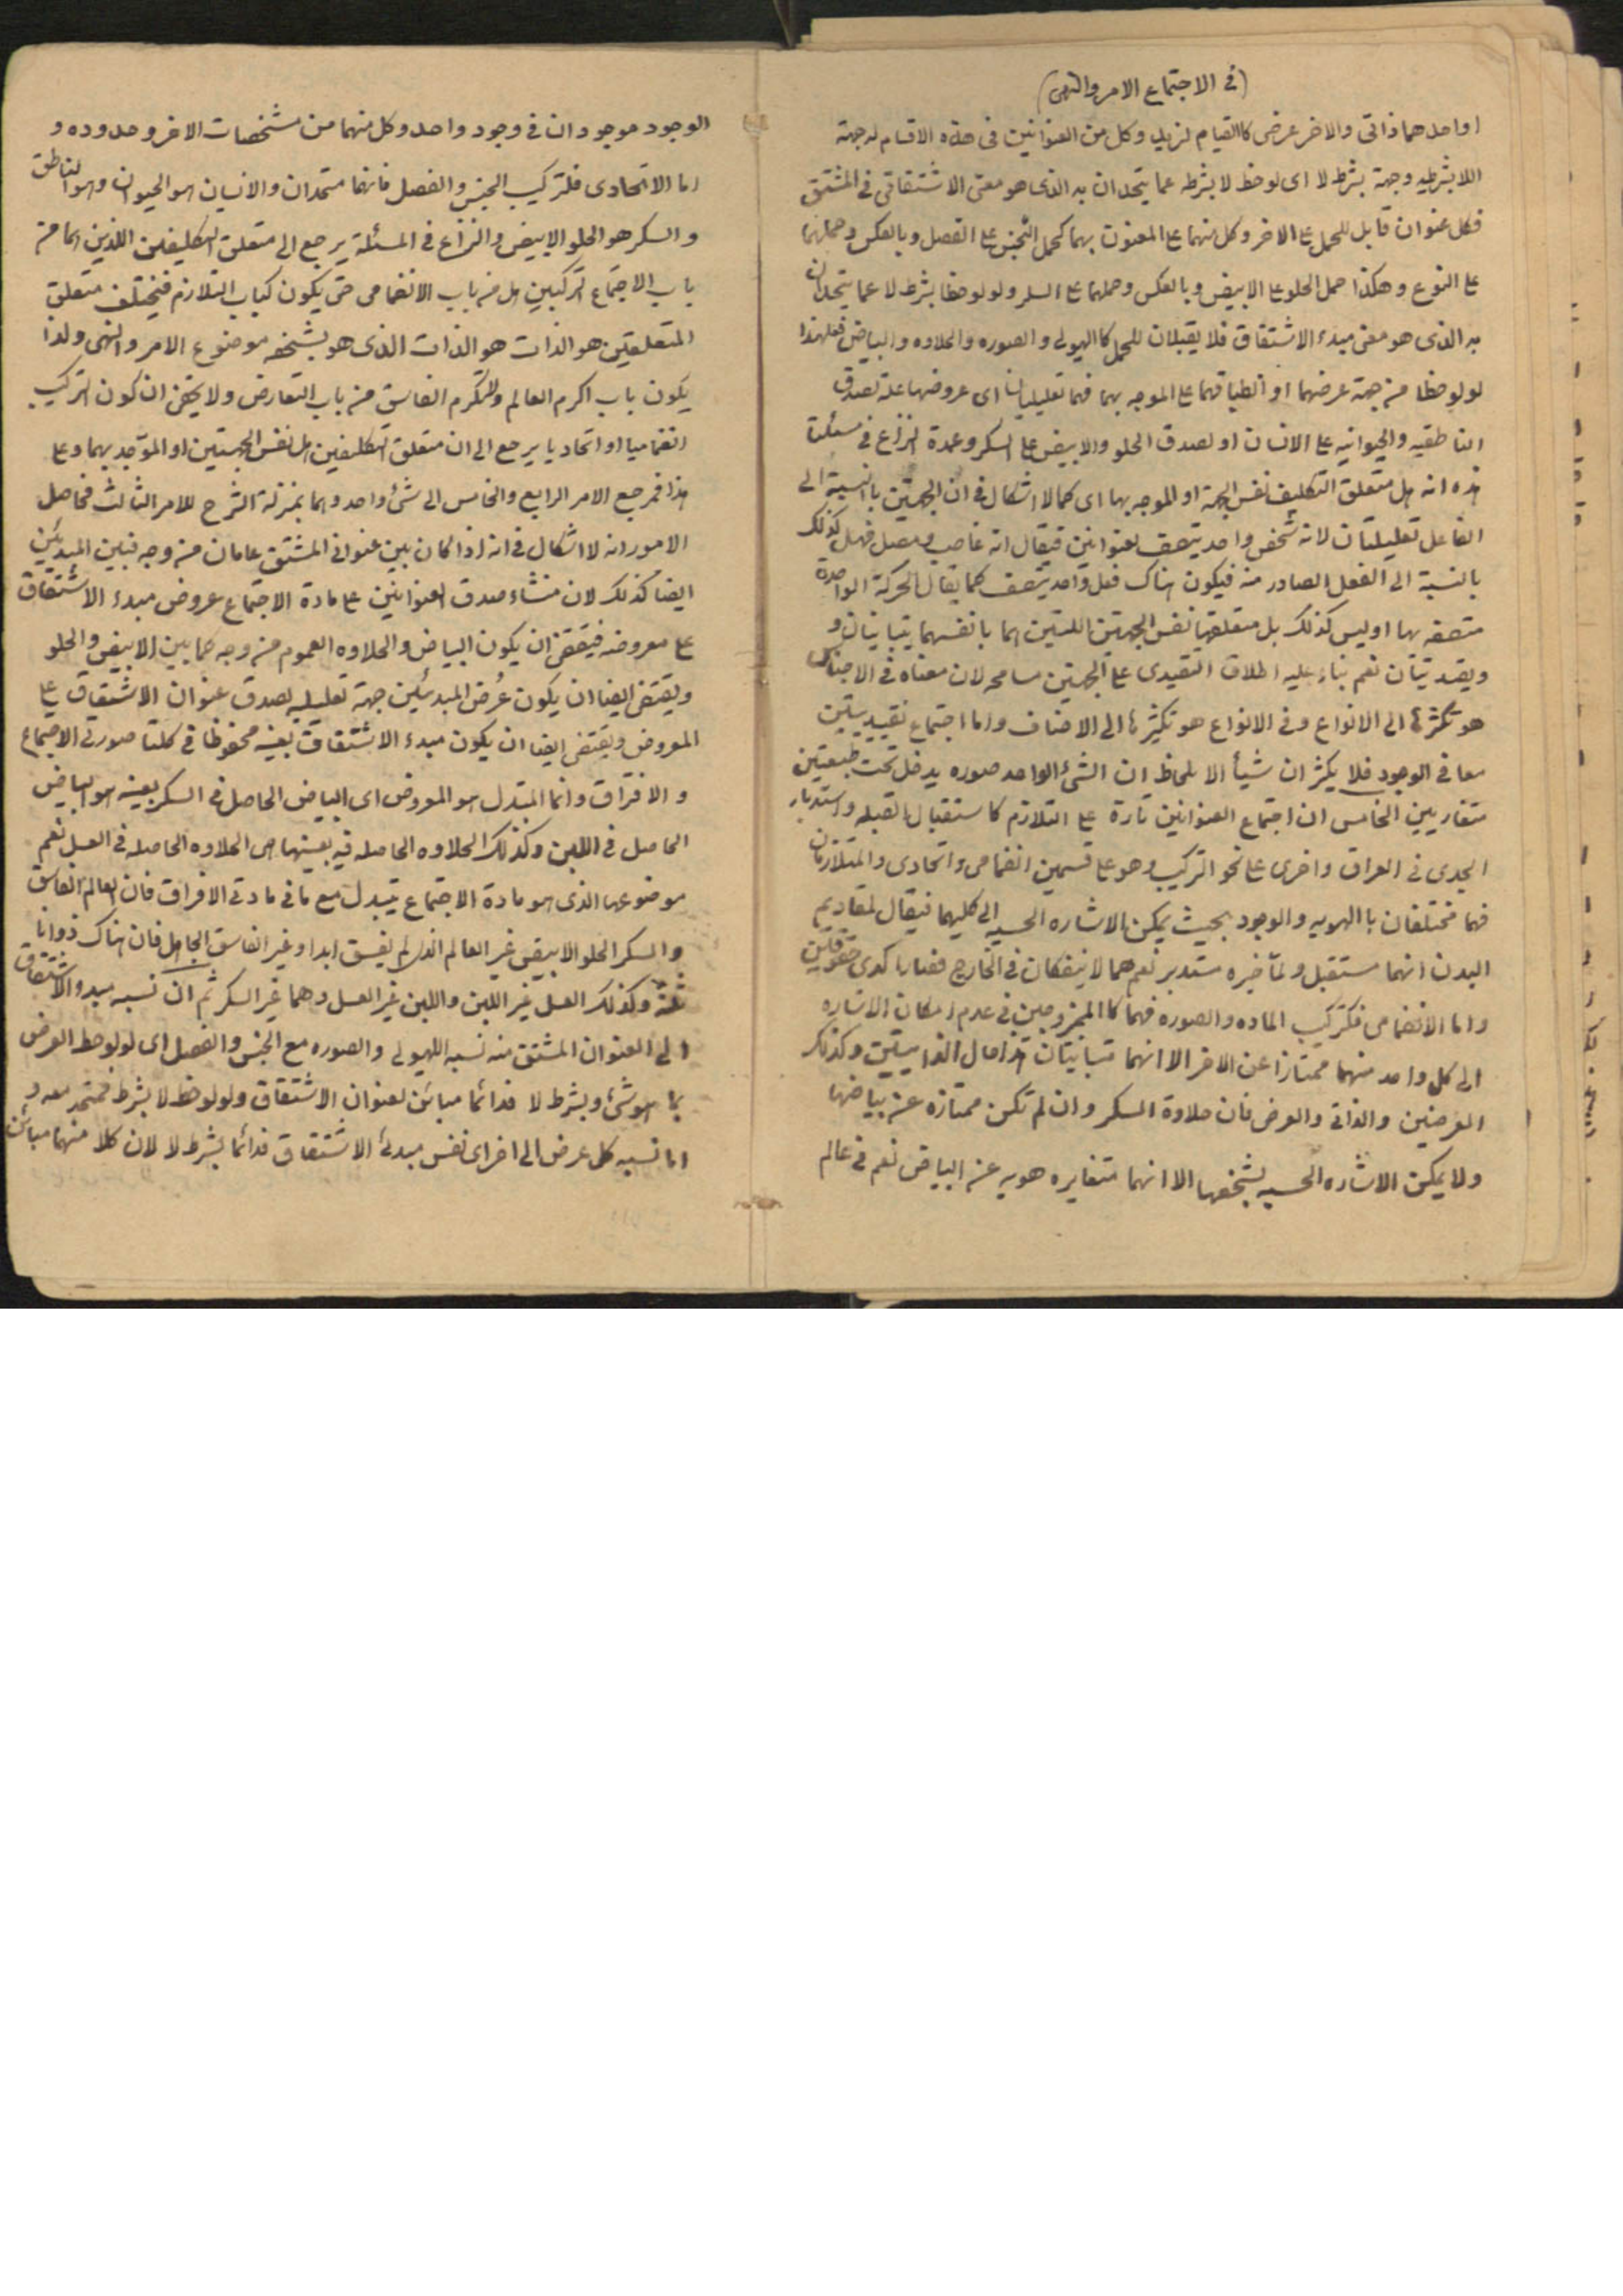 (في الاجتماع الامر والنهي)
او احدهما ذاتى والاخر عرضى كاالقيام لزيد وكل من العنوانين فى هذه الاقسام له جهة
اللابشرطيه وجهة بشرط لا اى لو لوحظ لا بشرط عما يتحدان به الذى هو معنى الاشتقاقى فى المشتق
فكل عنوان قابل للحمل على الاخر وكل منهما على المعنون بهما كحمل الجنس على الفصل وبالعكس وحملهما
على النوع وهكذا حمل الحلو على الابيض وبالعكس وحملهما على السكر ولو لوحظا بشرط لا عما يتحدان
به الذى هو معنى مبدء الاشتقاق فلا يقبلان للحمل كاالهيولى والصوره والحلاوه والبياض فعلهذا
لو لوحظا من جهة عرضهما او انطباقهما على الموجه بهما فهما تعليليتان اى عروضهما علة لصدق
الناطقيه والحيوانيه على الانسان او لصدق الحلو والابيض على السكر وعمدة النزاع فى مسئلتنا
هذه انه هل متعلق التكليف نفس الجهة او الموجه بها اى كما لا اشكال فى ان الجهتين باالنسبة الى
الفاعل تعليليتان لانه شخص واحد يتصف بعنوانين فيقال انه غاصب ومصل فهل كذلك
بالنسبة الى الفعل الصادر منه فيكون هناك فعل واحد يتصف كما يقال الحركة الواحدة
متصفه بها او ليس كذلك بل متعلقهما نفس الجهتين اللتين هما بانفسهما يتباينان و
ويقيديتان نعم بناء عليه اطلاق التقيدى على الجهتين مسامحه لان معناه فى الاجناس
هو تكثرها الى الانواع وفى الانواع هو تكثيرها الى الاصناف واما اجتماع تقييديتين
معا فى الوجود فلا يكثران شيأ الا بلحاظ ان الشئ الواحد صوره يدخل تحت طبيعتين
متغاريين الخامس ان اجتماع العنوانين تارة على التلازم كاستقبال القبله واستدبار
الجدى فى العراق واخرى على نحو التركيب وهو على قسمين انضمامى واتحادى والمتلازمان
فهما مختلفان باالهويه والوجود بحيث يمكن الاشاره الحسيه الى كليهما فيقال لمقاديم
البدن انهما مستقبل ولمآخيره مستدبر نعم هما لا ينفكان فى الخارج فصارا كدى حقوقين
واما الانضمامى فكتركيب الماده والصوره فهما كاالممزوجين فى عدم امكان الاشاره
الى كل واحد منهما ممتازا عن الاخر الا انهما متباينتان هذا حال الذاتيتين وكذلك
العرضين والذاتى والعرض فان حلاوة السكر وان لم تكن ممتازه عن بياضها
ولا يمكن الاشاره الحسيه بشخصها الا انهما متغايره هويه عن البياض نعم فى عالم
الوجود موجودان فى وجود واحد وكل منهما من مشخصات الاخر وحدوده و
اما الاتحادى فلتركيب الجنس والفصل فانهما متحدان والانسان هو الحيوان وهو الناطق
والسكر هو الحلو الابيض والنزاع فى المسئلة يرجع الى متعلق التكليفين اللذين هما من
باب الاجتماع التركيبين هل من باب الانضمامى حتى يكون كباب التلازم فيختلف متعلق
المتعلقين هو الذات هو الذات الذى هو بشخصه موضوع الامر والنهى ولذا
يكون باب اكرم العالم ولاتكرم الفاسق من باب التعارض ولا يخفى ان كون التركيب
انضماميا او اتحاديا يرجع الى ان متعلق التكليفين هل نفس الجهتين او الموجه بهما وعلى
هذا فمرجع الامر الرابع والخامس الى شئ واحد وهما بمنزلة الشرح للامر الثالث فحاصل
الامور انه لا اشكال فى انه اذا كان بين عنوانى المشتق عامان من وجه فبين المبدئين
ايضا كذلك لان منشاء صدق العنوانين على مادة الاجتماع عروض مبدء الاشتقاق
على معروضه فيقتضى ان يكون البياض والحلاوه العموم من وجه كما بين الابيض والحلو
ويقتضى ايضا ان يكون عُرض المبدئين جهة تعليليه لصدق عنوان الاشتقاق على
المعروض ويقتضى ايضا ان يكون مبدء الاشتقاق بعينه محفوظا فى كلتا صورتى الاجتماع
والافتراق وانما المتبدل هو المعروض اى البياض الحاصل فى السكر بعينه هو البياض
الحاصل فى اللبن وكذلك الحلاوه الحاصله فيه بعينها هى الحلاوه الحاصله فى العسل نعم
موضوعها الذى هو مادة الاجتماع يتبدل مع ما فى مادتى الافراق فان العالم الفاسق
والسكر الحلو الابيض غير العالم الذى لم يفسق ابدا وغير الفاسق الجاهل فان هناك ذواتا
ثلثة وكذلك العسل غير اللبن واللبن غير العسل وهما غير السكر ثم ان نسبه مبدء الاشتقاق
الى العنوان المشتق منه نسبه الهيولى والصوره مع الجنس والفصل اى لو لوحظ العرض
بما هو شئ وبشرط لا فدائما مبائن لعنوان الاشتقاق ولو لوحظ لا بشرط فمتحد معه و
اما نسبه كل عرض الى اخر اى نفس مبدئى الاشتقاق فدائما بشرط لا لان كلا منهما مبائن